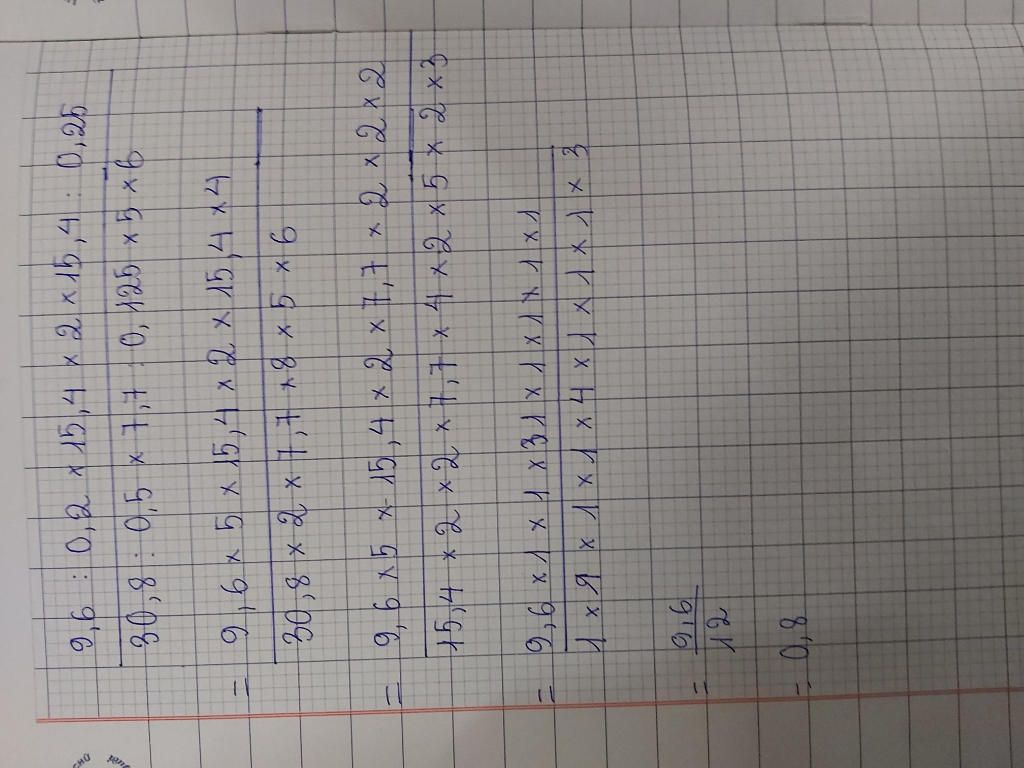 9,6 : 0,2 × 15,4 × 2 × 15,4 : 0,25
30,8 : 0,5 × 7,7 : 0,125 × 5 × 6
= 9,6 × 5 × 15,4 × 2 × 15,4 × 4
30,8 × 2 × 7,7 × 8 × 5 × 6
= 9,6 × 5 × 15,4 × 2 × 7,7 × 2 × 2 × 2
15,4 × 2 × 2 × 7,7 × 4 × 2 × 5 × 2 × 3
= 9,6 × 1 × 1 × 31 × 1 × 1 × 1 × 1
1 × 9 × 1 × 1 × 4 × 1 × 1 × 1 × 3
= 9,6
12
= 0,8